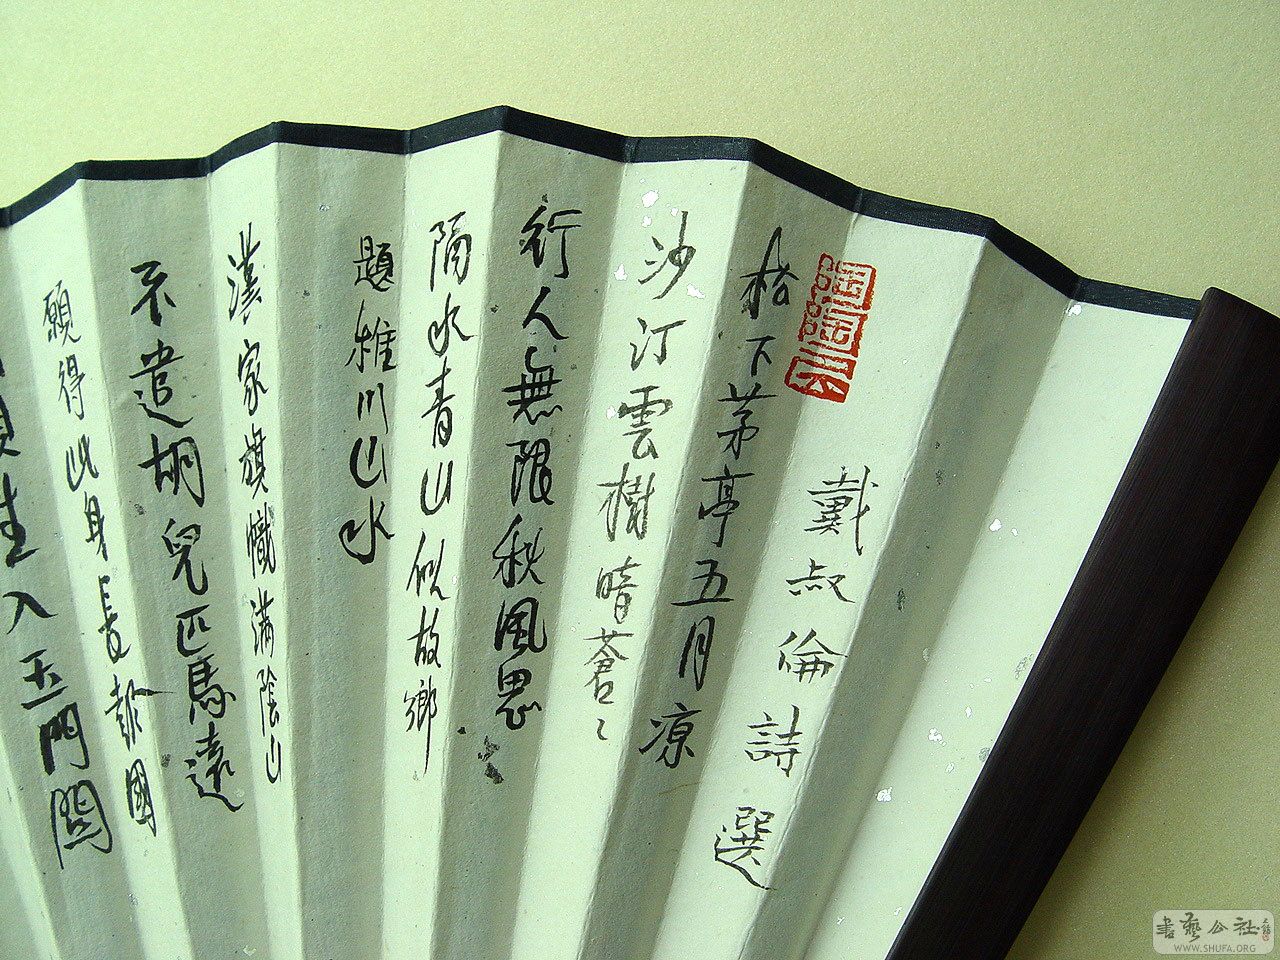 戴叔倫詩選
松下茅亭五月凉
沙汀雲樹暗蒼〻
行人無限秋風思
隔水青山似故鄉
題稚川山水
漢家旗幟滿陰山
不遣胡兒匹馬還
願得此身長報國
須生入玉門關
書藝公社
WWW.SHUFA.ORG